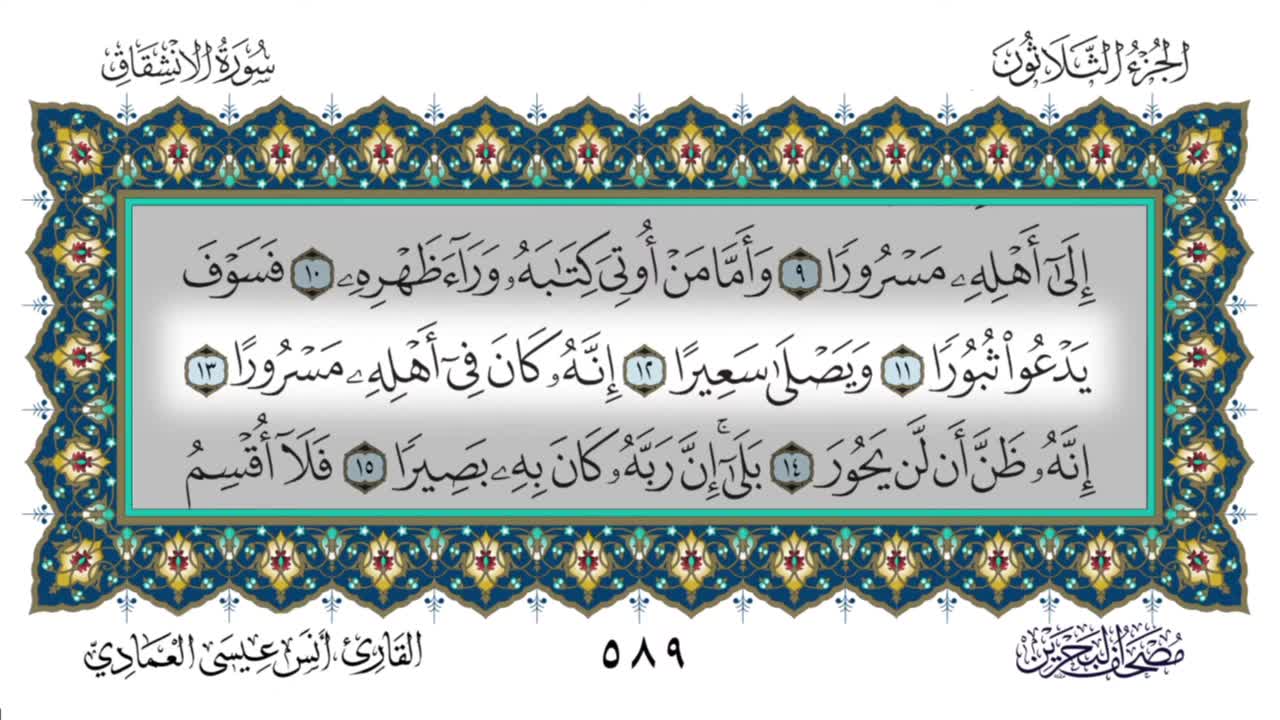 الجُزْءُ الثَّلَاثُونَ
سُورَةُ الانْشِقَاقِ
إِلَىٰٓ أَهْلِهِۦ مَسْرُورًا ٩ وَأَمَّا مَنْ أُوتِىَ كِتَٰبَهُۥ وَرَآءَ ظَهْرِهِۦ ١٠ فَسَوْفَ
يَدْعُوا۟ ثُبُورًا ١١ وَيَصْلَىٰ سَعِيرًا ١٢ إِنَّهُۥ كَانَ فِىٓ أَهْلِهِۦ مَسْرُورًا ١٣
إِنَّهُۥ ظَنَّ أَن لَّن يَحُورَ ١٤ بَلَىٰٓ ۚ إِنَّ رَبَّهُۥ كَانَ بِهِۦ بَصِيرًا ١٥ فَلَآ أُقْسِمُ
مُصْحَفُ البَحْرَيْنِ
٥٨٩
القَارِئ، أَنَس عِيسَى العَمَادِيّ